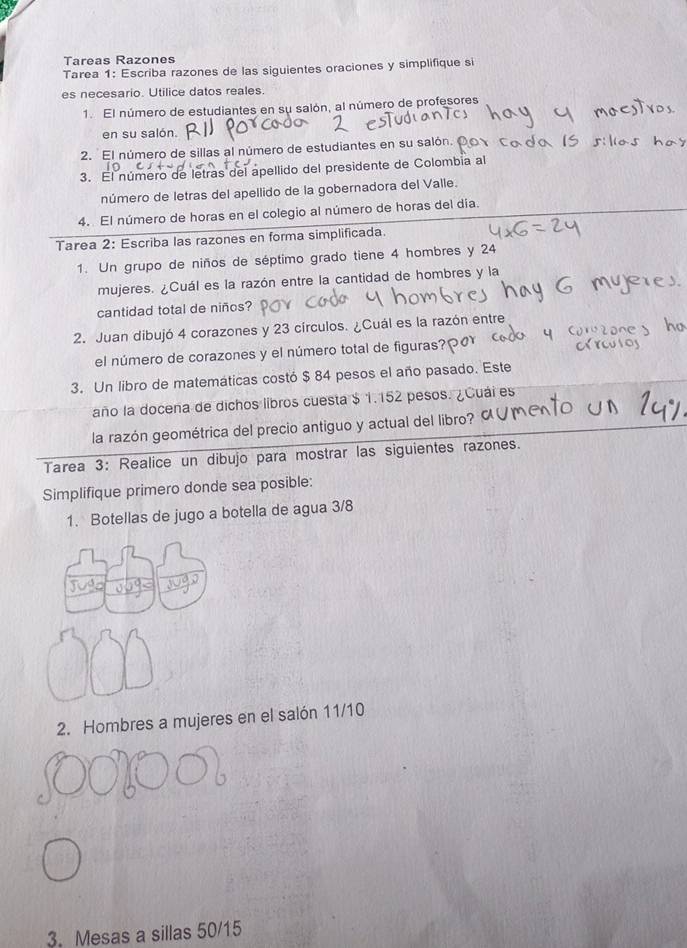 Tareas Razones
Tarea 1: Escriba razones de las siguientes oraciones y simplifique si
es necesario. Utilice datos reales.
1. El número de estudiantes en su salón, al número de profesores
en su salón. R// por cada 2 estudiantes hay 4 maestros
2. El número de sillas al número de estudiantes en su salón. por cada 15 sillas hay
10 estudiantes.
3. El número de letras del apellido del presidente de Colombia al
número de letras del apellido de la gobernadora del Valle.
4. El número de horas en el colegio al número de horas del día.
Tarea 2: Escriba las razones en forma simplificada. 4x6=24
1. Un grupo de niños de séptimo grado tiene 4 hombres y 24
mujeres. ¿Cuál es la razón entre la cantidad de hombres y la
cantidad total de niños? por cada 4 hombres hay 6 mujeres.
2. Juan dibujó 4 corazones y 23 círculos. ¿Cuál es la razón entre
el número de corazones y el número total de figuras? por cada 4 corozones ha
círculos
3. Un libro de matemáticas costó $ 84 pesos el año pasado. Este
año la docena de dichos libros cuesta $ 1.152 pesos. ¿Cuál es
la razón geométrica del precio antiguo y actual del libro? aumento un 14%
Tarea 3: Realice un dibujo para mostrar las siguientes razones.
Simplifique primero donde sea posible:
1. Botellas de jugo a botella de agua 3/8
Jugo Jugo Jugo
2. Hombres a mujeres en el salón 11/10
3. Mesas a sillas 50/15